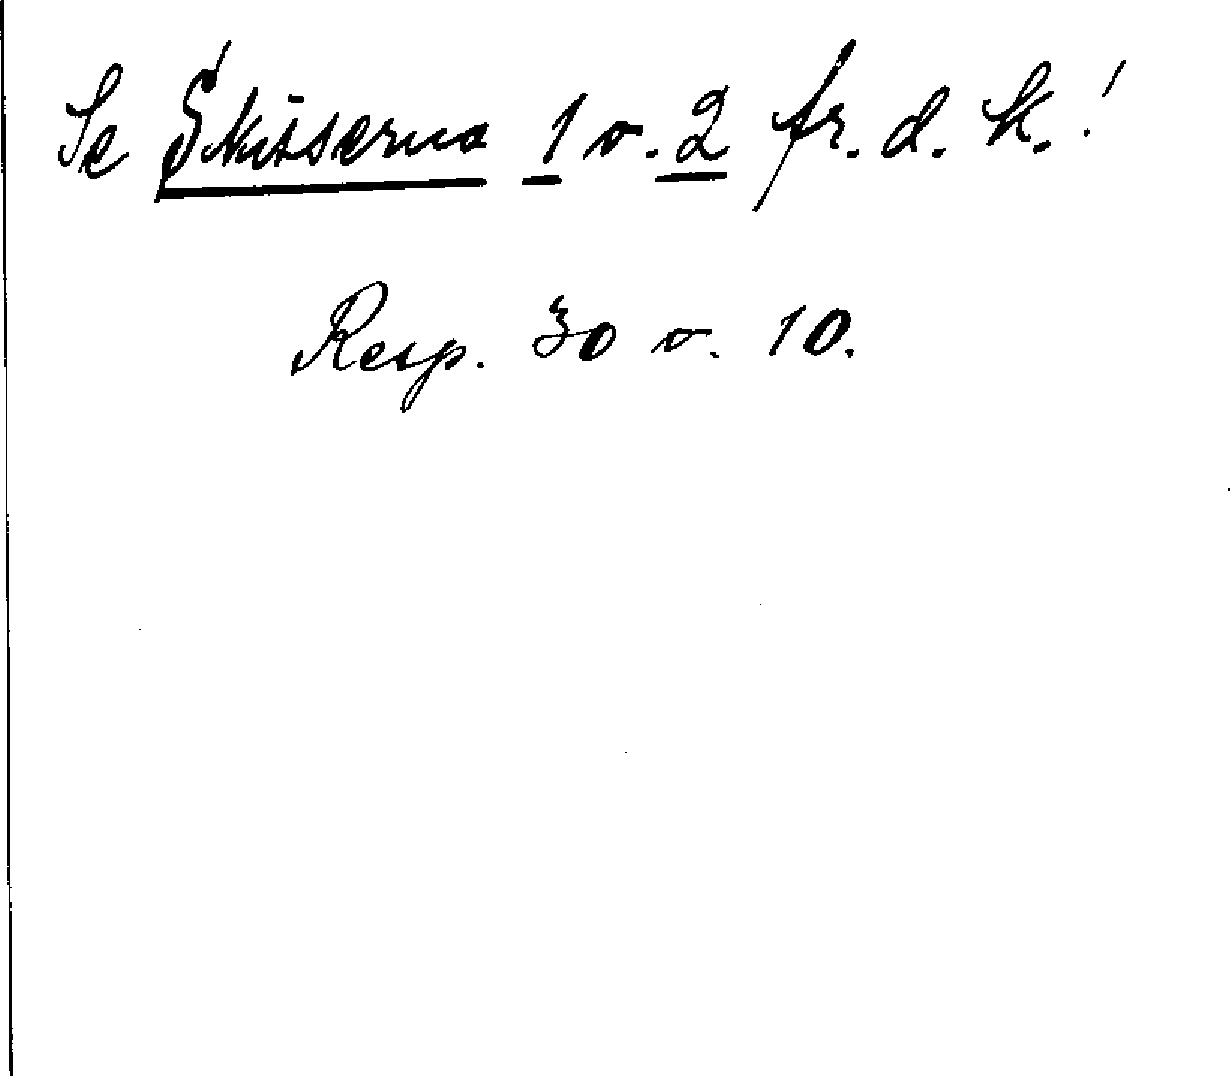 Se Skisserna 1 o. 2 fr. d. k.!
Resp. 30 o. 10.